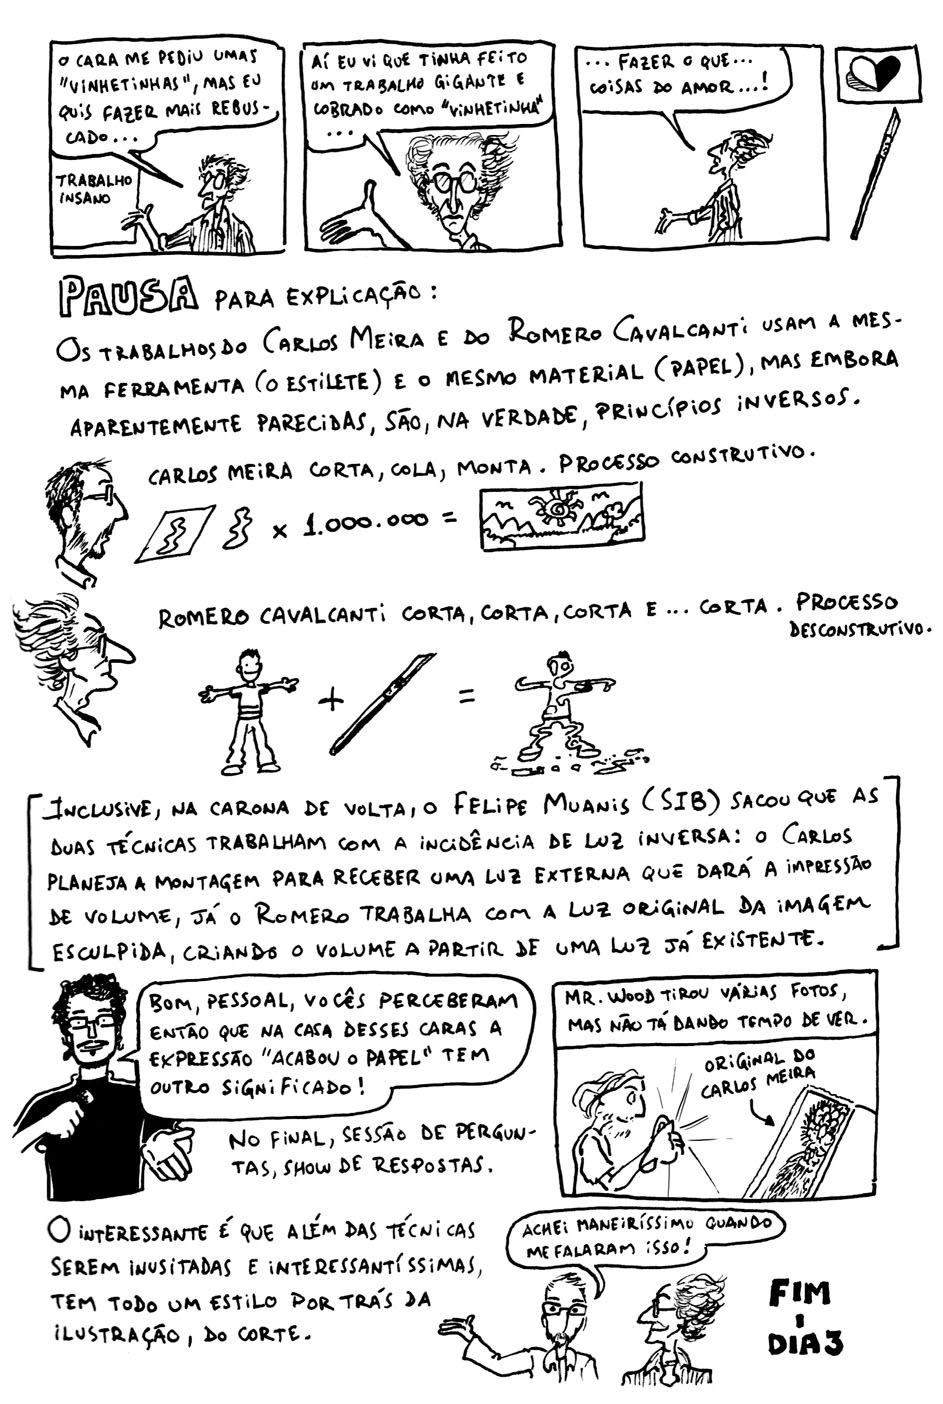 O CARA ME PEDIU UMAS
"VINHETINHAS", MAS EU
QUIS FAZER MAIS REBUS-
CADO...
TRABALHO
INSANO
AÍ EU VI QUE TINHA FEITO
UM TRABALHO GIGANTE E
COBRADO COMO "VINHETINHA"
...
...FAZER O QUE...
COISAS DO AMOR...!
PAUSA PARA EXPLICAÇÃO:
OS TRABALHOS DO CARLOS MEIRA E DO ROMERO CAVALCANTI USAM A MES-
MA FERRAMENTA (O ESTILETE) E O MESMO MATERIAL (PAPEL), MAS EMBORA
APARENTEMENTE PARECIDAS, SÃO, NA VERDADE, PRINCÍPIOS INVERSOS.
CARLOS MEIRA CORTA, COLA, MONTA. PROCESSO CONSTRUTIVO.
x 1.000.000 =
ROMERO CAVALCANTI CORTA, CORTA, CORTA E ... CORTA. PROCESSO
DESCONSTRUTIVO.
+ =
[INCLUSIVE, NA CARONA DE VOLTA, O FELIPE MUANIS (SIB) SACOU QUE AS
DUAS TÉCNICAS TRABALHAM COM A INCIDÊNCIA DE LUZ INVERSA: O CARLOS
PLANEJA A MONTAGEM PARA RECEBER UMA LUZ EXTERNA QUE DARÁ A IMPRESSÃO
DE VOLUME, JÁ O ROMERO TRABALHA COM A LUZ ORIGINAL DA IMAGEM
ESCULPIDA, CRIANDO O VOLUME A PARTIR DE UMA LUZ JÁ EXISTENTE.]
BOM, PESSOAL, VOCÊS PERCEBERAM
ENTÃO QUE NA CASA DESSES CARAS A
EXPRESSÃO "ACABOU O PAPEL" TEM
OUTRO SIGNIFICADO!
NO FINAL, SESSÃO DE PERGUN-
TAS, SHOW DE RESPOSTAS.
MR. WOOD TIROU VÁRIAS FOTOS,
MAS NÃO TÁ DANDO TEMPO DE VER.
ORIGINAL DO
CARLOS MEIRA
O INTERESSANTE É QUE ALÉM DAS TÉCNICAS
SEREM INUSITADAS E INTERESSANTÍSSIMAS,
TEM TODO UM ESTILO POR TRÁS DA
ILUSTRAÇÃO, DO CORTE.
ACHEI MANEIRÍSSIMO QUANDO
ME FALARAM ISSO!
FIM
DIA 3